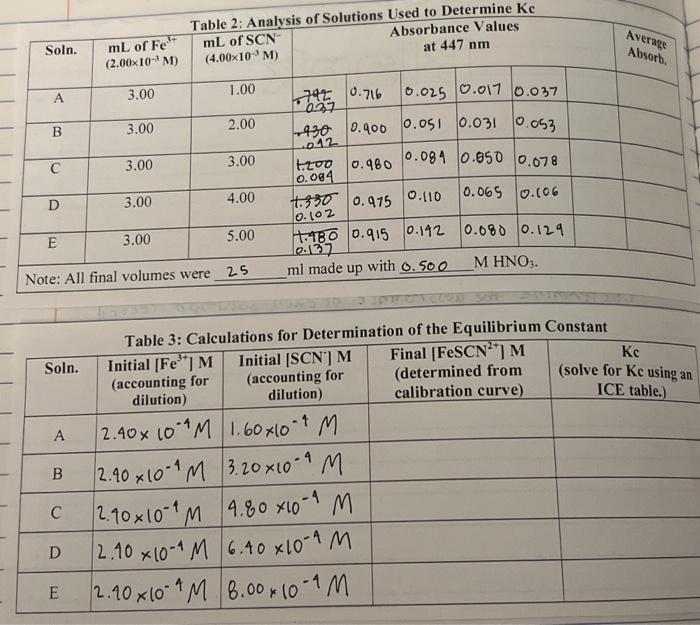 Table 2: Analysis of Solutions Used to Determine Kc
Soln.
mL of Fe³⁺
(2.00×10⁻³ M)
mL of SCN⁻
(4.00×10⁻³ M)
Absorbance Values
at 447 nm
Average
Absorb.
A 3.00 1.00 0.716 0.025 0.017 0.037
.037
B 3.00 2.00 .430 0.900 0.051 0.031 0.053
.042
C 3.00 3.00 1.200 0.980 0.084 0.050 0.078
0.084
D 3.00 4.00 1.330 0.975 0.110 0.065 0.106
0.102
E 3.00 5.00 1.480 0.915 0.142 0.080 0.129
0.137
Note: All final volumes were 25 ml made up with 0.500 M HNO₃.
Table 3: Calculations for Determination of the Equilibrium Constant
Soln.
Initial [Fe³⁺] M
(accounting for
dilution)
Initial [SCN⁻] M
(accounting for
dilution)
Final [FeSCN²⁺] M
(determined from
calibration curve)
Kc
(solve for Kc using an
ICE table.)
A 2.40 × 10⁻⁴ M 1.60 × 10⁻⁴ M
B 2.40 × 10⁻⁴ M 3.20 × 10⁻⁴ M
C 2.40 × 10⁻⁴ M 4.80 × 10⁻⁴ M
D 2.40 × 10⁻⁴ M 6.40 × 10⁻⁴ M
E 2.40 × 10⁻⁴ M 8.00 × 10⁻⁴ M